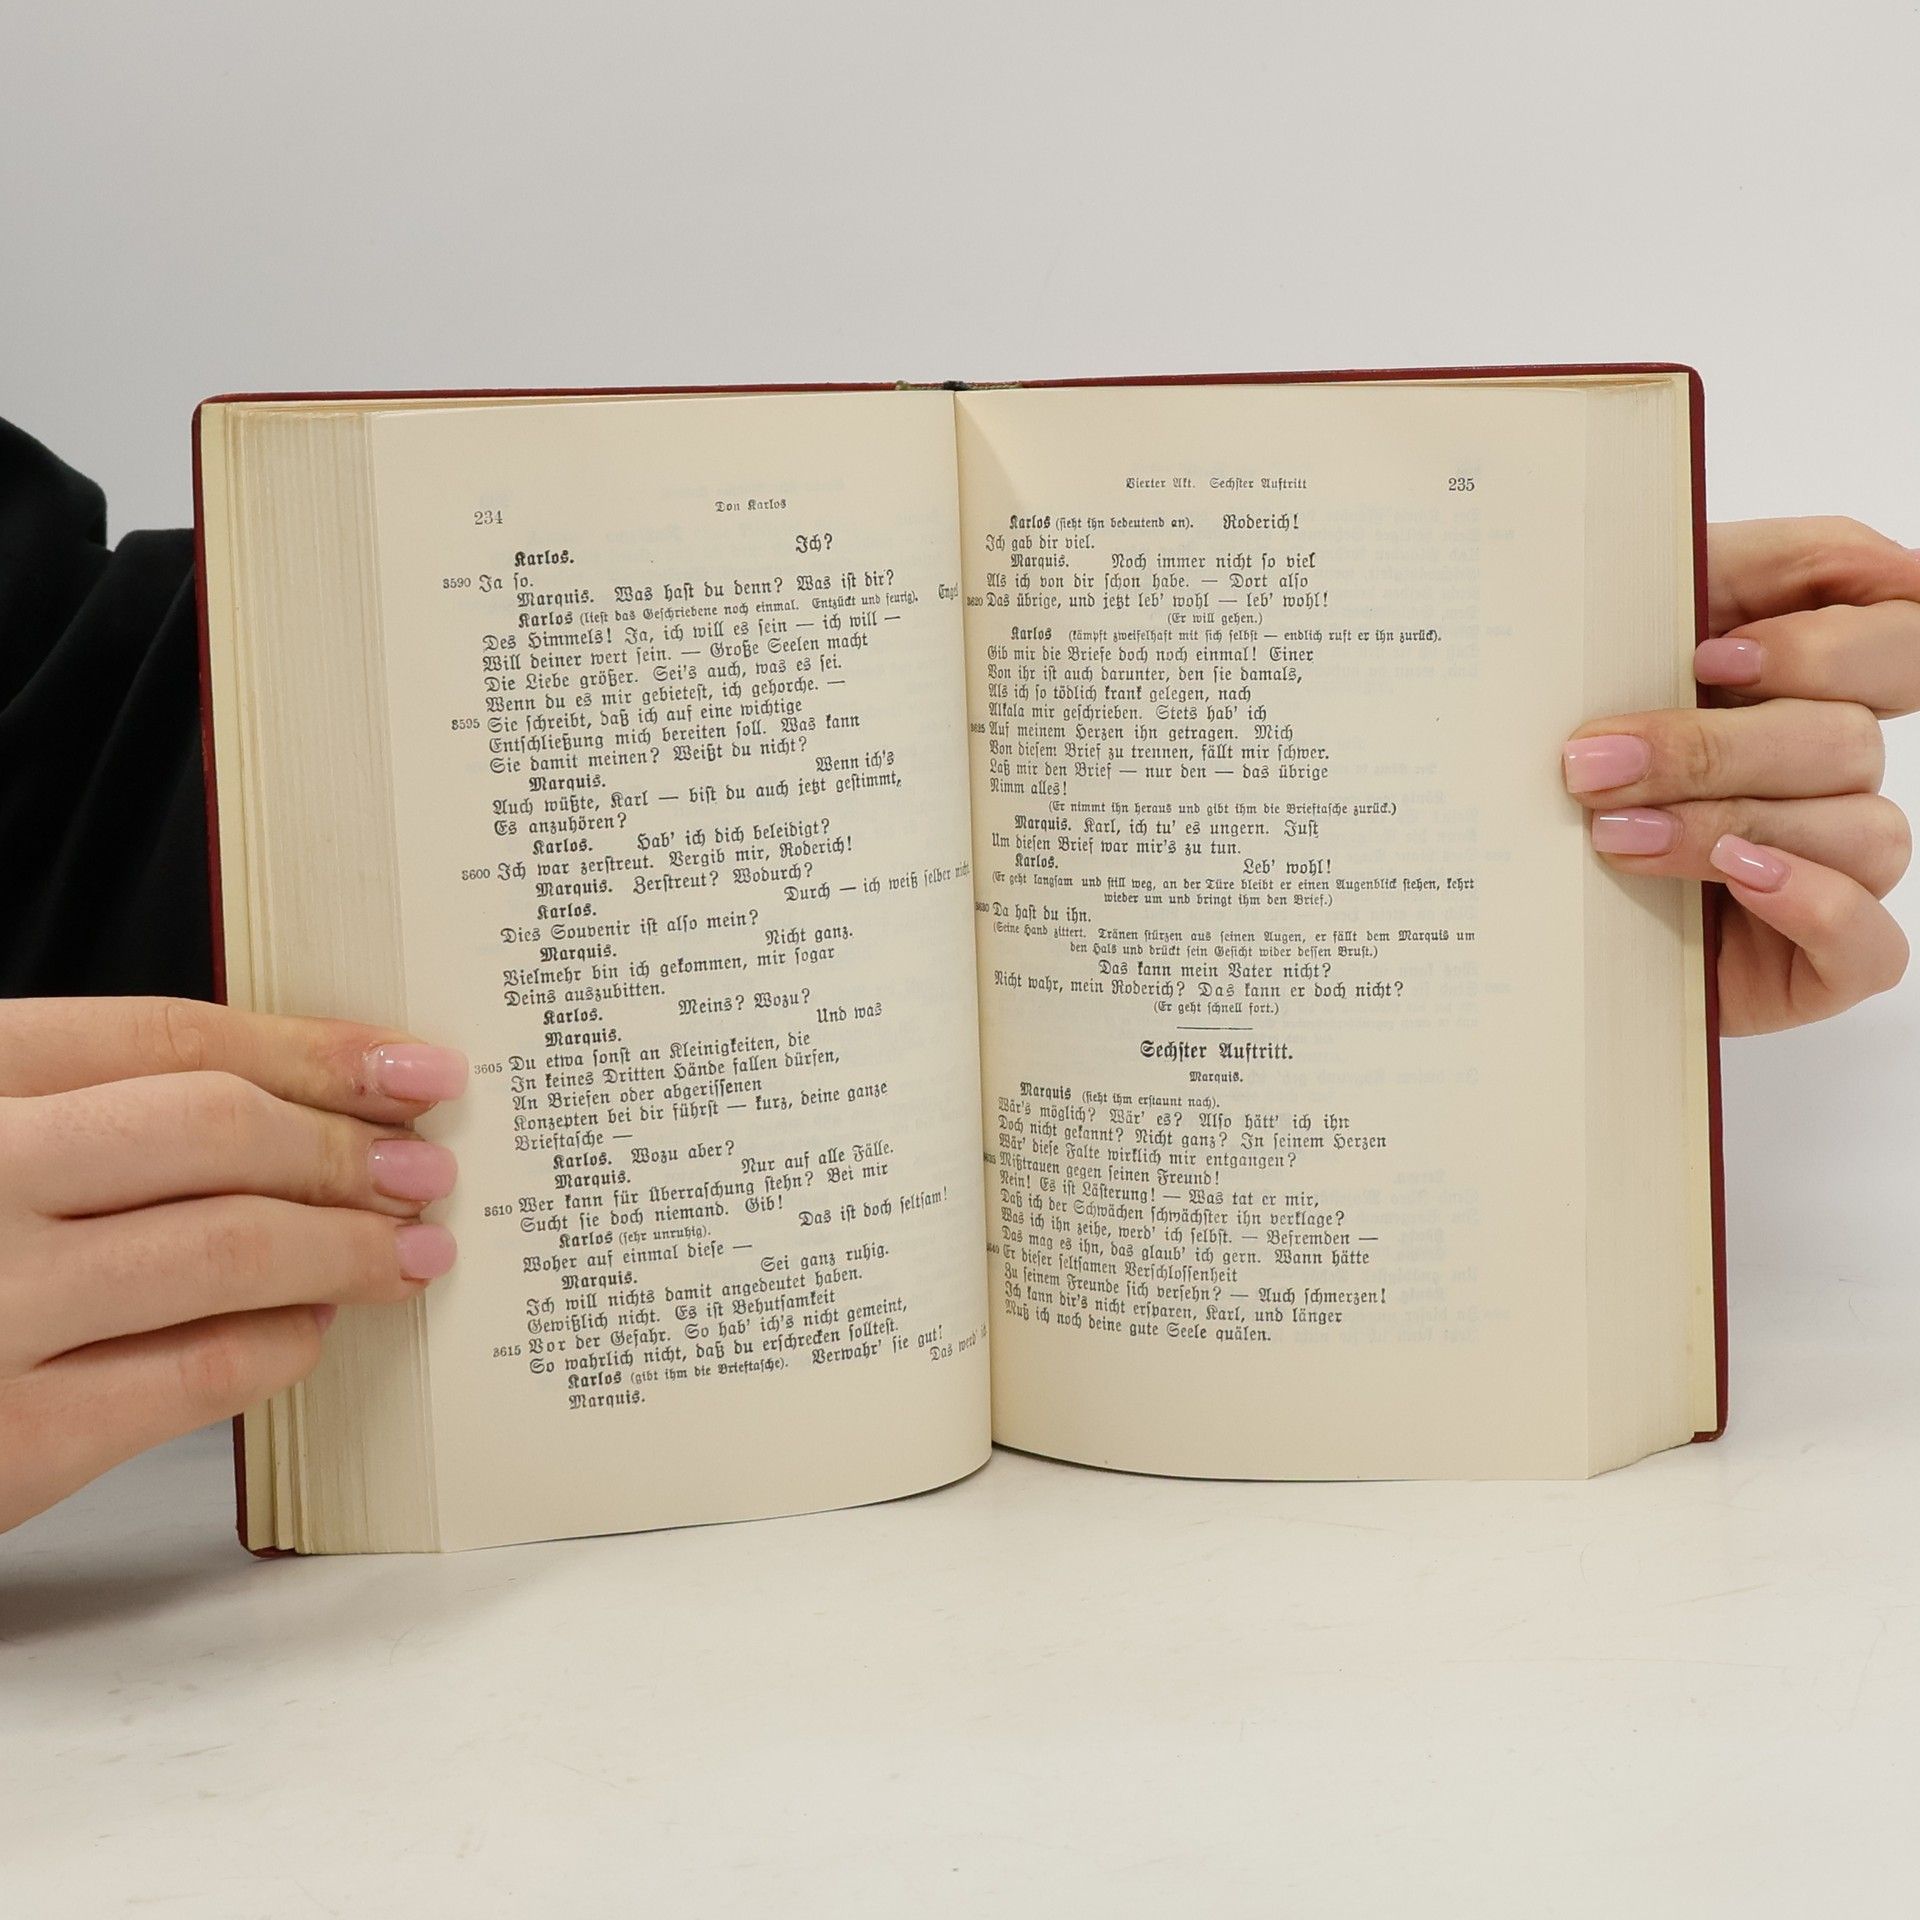 234
Don Karlos
Ich?
Karlos.
3590 Ja ſo.
Marquis. Was haſt du denn? Was iſt dir?
Karlos (lieſt das Geſchriebene noch einmal. Entzückt und feurig). Engel
Des Himmels! Ja, ich will es ſein — ich will —
Will deiner wert ſein. — Große Seelen macht
Die Liebe größer. Sei's auch, was es ſei.
Wenn du es mir gebieteſt, ich gehorche. —
3595 Sie ſchreibt, daß ich auf eine wichtige
Entſchließung mich bereiten ſoll. Was kann
Sie damit meinen? Weißt du nicht?
Marquis. Wenn ich's
Auch wüßte, Karl — biſt du auch jetzt geſtimmt,
Es anzuhören?
Karlos. Hab' ich dich beleidigt?
3600 Ich war zerſtreut. Vergib mir, Roderich!
Marquis. Zerſtreut? Wodurch?
Karlos. Durch — ich weiß ſelber nicht
Dies Souvenir iſt alſo mein?
Marquis. Nicht ganz.
Vielmehr bin ich gekommen, mir ſogar
Deins auszubitten.
Karlos. Meins? Wozu?
Marquis. Und was
3605 Du etwa ſonſt an Kleinigkeiten, die
In keines Dritten Hände fallen dürfen,
An Briefen oder abgeriſſenen
Konzepten bei dir führſt — kurz, deine ganze
Brieftaſche —
Karlos. Wozu aber?
Marquis. Nur auf alle Fälle.
3610 Wer kann für Überraſchung ſtehn? Bei mir
Sucht ſie doch niemand. Gib!
Karlos (ſehr unruhig). Das iſt doch ſeltſam!
Woher auf einmal dieſe —
Marquis. Sei ganz ruhig.
Ich will nichts damit angedeutet haben.
Gewißlich nicht. Es iſt Behutſamkeit
3615 Vor der Gefahr. So hab' ich's nicht gemeint,
So wahrlich nicht, daß du erſchrecken ſollteſt.
Karlos (gibt ihm die Brieftaſche). Verwahr' ſie gut!
Marquis. Das werd' ich
Vierter Akt. Sechſter Auftritt
235
Karlos (ſieht ihn bedeutend an). Roderich!
Ich gab dir viel.
Marquis. Noch immer nicht ſo viel
Als ich von dir ſchon habe. — Dort alſo
3620 Das übrige, und jetzt leb' wohl — leb' wohl!
(Er will gehen.)
Karlos (kämpft zweifelhaft mit ſich ſelbſt — endlich ruft er ihn zurück).
Gib mir die Briefe doch noch einmal! Einer
Von ihr iſt auch darunter, den ſie damals,
Als ich ſo tödlich krank gelegen, nach
Alkala mir geſchrieben. Stets hab' ich
3625 Auf meinem Herzen ihn getragen. Mich
Von dieſem Brief zu trennen, fällt mir ſchwer.
Laß mir den Brief — nur den — das übrige
Nimm alles!
(Er nimmt ihn heraus und gibt ihm die Brieftaſche zurück.)
Marquis. Karl, ich tu' es ungern. Juſt
Um dieſen Brief war mir's zu tun.
Karlos. Leb' wohl!
(Er geht langſam und ſtill weg, an der Türe bleibt er einen Augenblick ſtehen, kehrt
wieder um und bringt ihm den Brief.)
3630 Da haſt du ihn.
(Seine Hand zittert. Tränen ſtürzen aus ſeinen Augen, er fällt dem Marquis um
den Hals und drückt ſein Geſicht wider deſſen Bruſt.)
Das kann mein Vater nicht?
Nicht wahr, mein Roderich? Das kann er doch nicht?
(Er geht ſchnell fort.)
Sechſter Auftritt.
Marquis.
Marquis (ſieht ihm erſtaunt nach).
Wär's möglich? Wär' es? Alſo hätt' ich ihn
Doch nicht gekannt? Nicht ganz? In ſeinem Herzen
Wär' dieſe Falte wirklich mir entgangen?
3635 Mißtrauen gegen ſeinen Freund!
Nein! Es iſt Läſterung! — Was tat er mir,
Daß ich der Schwächen ſchwächſter ihn verklage?
Was ich ihn zeihe, werd' ich ſelbſt. — Befremden —
Das mag es ihn, das glaub' ich gern. Wann hätte
3640 Er dieſer ſeltſamen Verſchloſſenheit
Zu ſeinem Freunde ſich verſehn? — Auch ſchmerzen!
Ich kann dir's nicht erſparen, Karl, und länger
Muß ich noch deine gute Seele quälen.